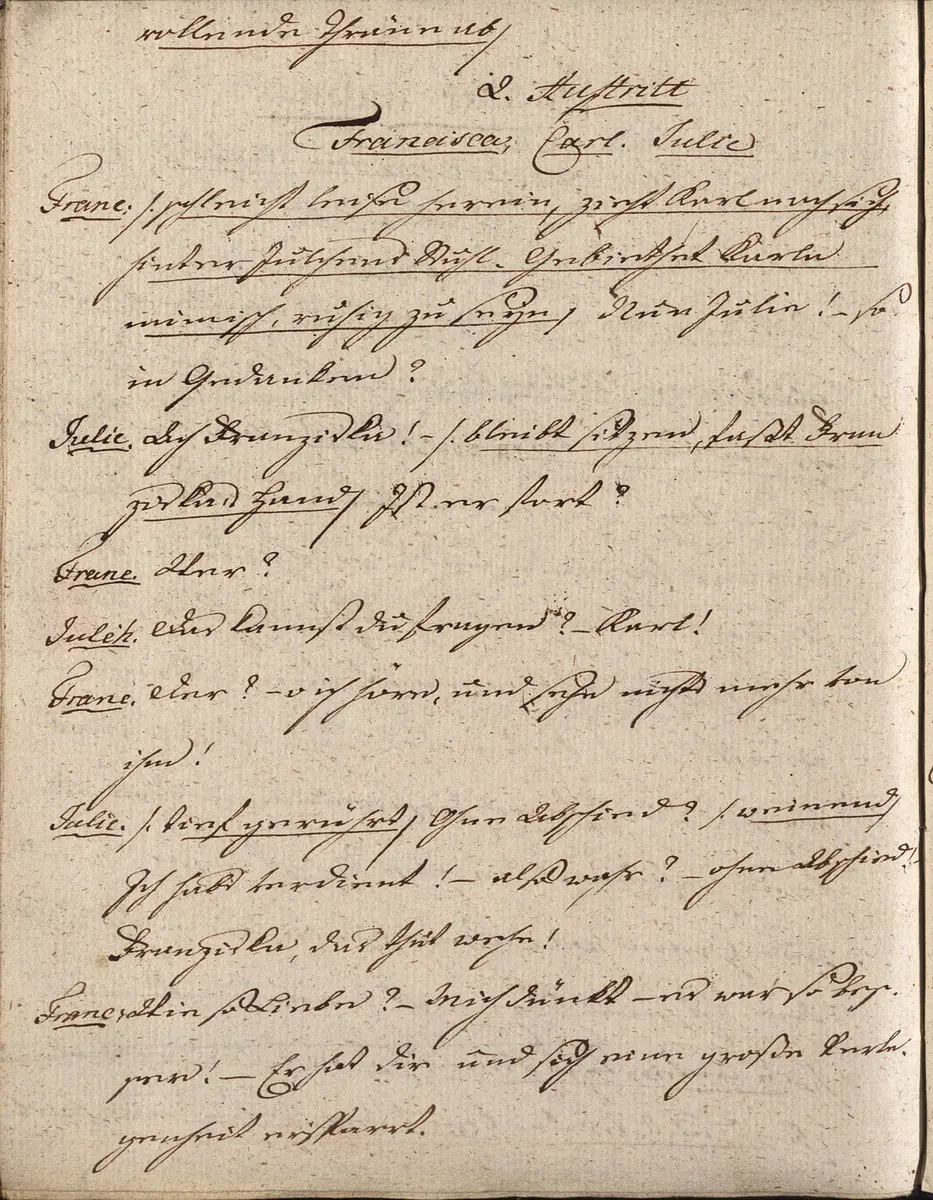 rollende Thräne ab/
2. Auftritt
Francisca, Carl. Julie
Franc: /: schleicht leise herein, zieht Karl nach sich,
hinter Julchens Stuhl. Gebiethet Karln
mimisch, ruhig zu seyn/ Nun Julie! – so
in Gedanken?
Julie. Ach Franziska! – /: bleibt sitzen, faßt Fran
ziskas Hand/ Ist er fort?
Franc. Wer?
Julch. Das kannst du fragen? – Karl!
Franc. Der? – o ich höre, und sehe nichts mehr von
ihm!
Julie. /: tief gerührt/ Ohne Abschied? /: weinend/
Ich habs verdient! – also wahr? – ohne Abschied! –
Franziska, das thut wehe!
Franc: Wie so Liebe? – Mich dünkt – es war so bes-
ser! – Er hat dir und sich eine große Verle-
genheit erspart.